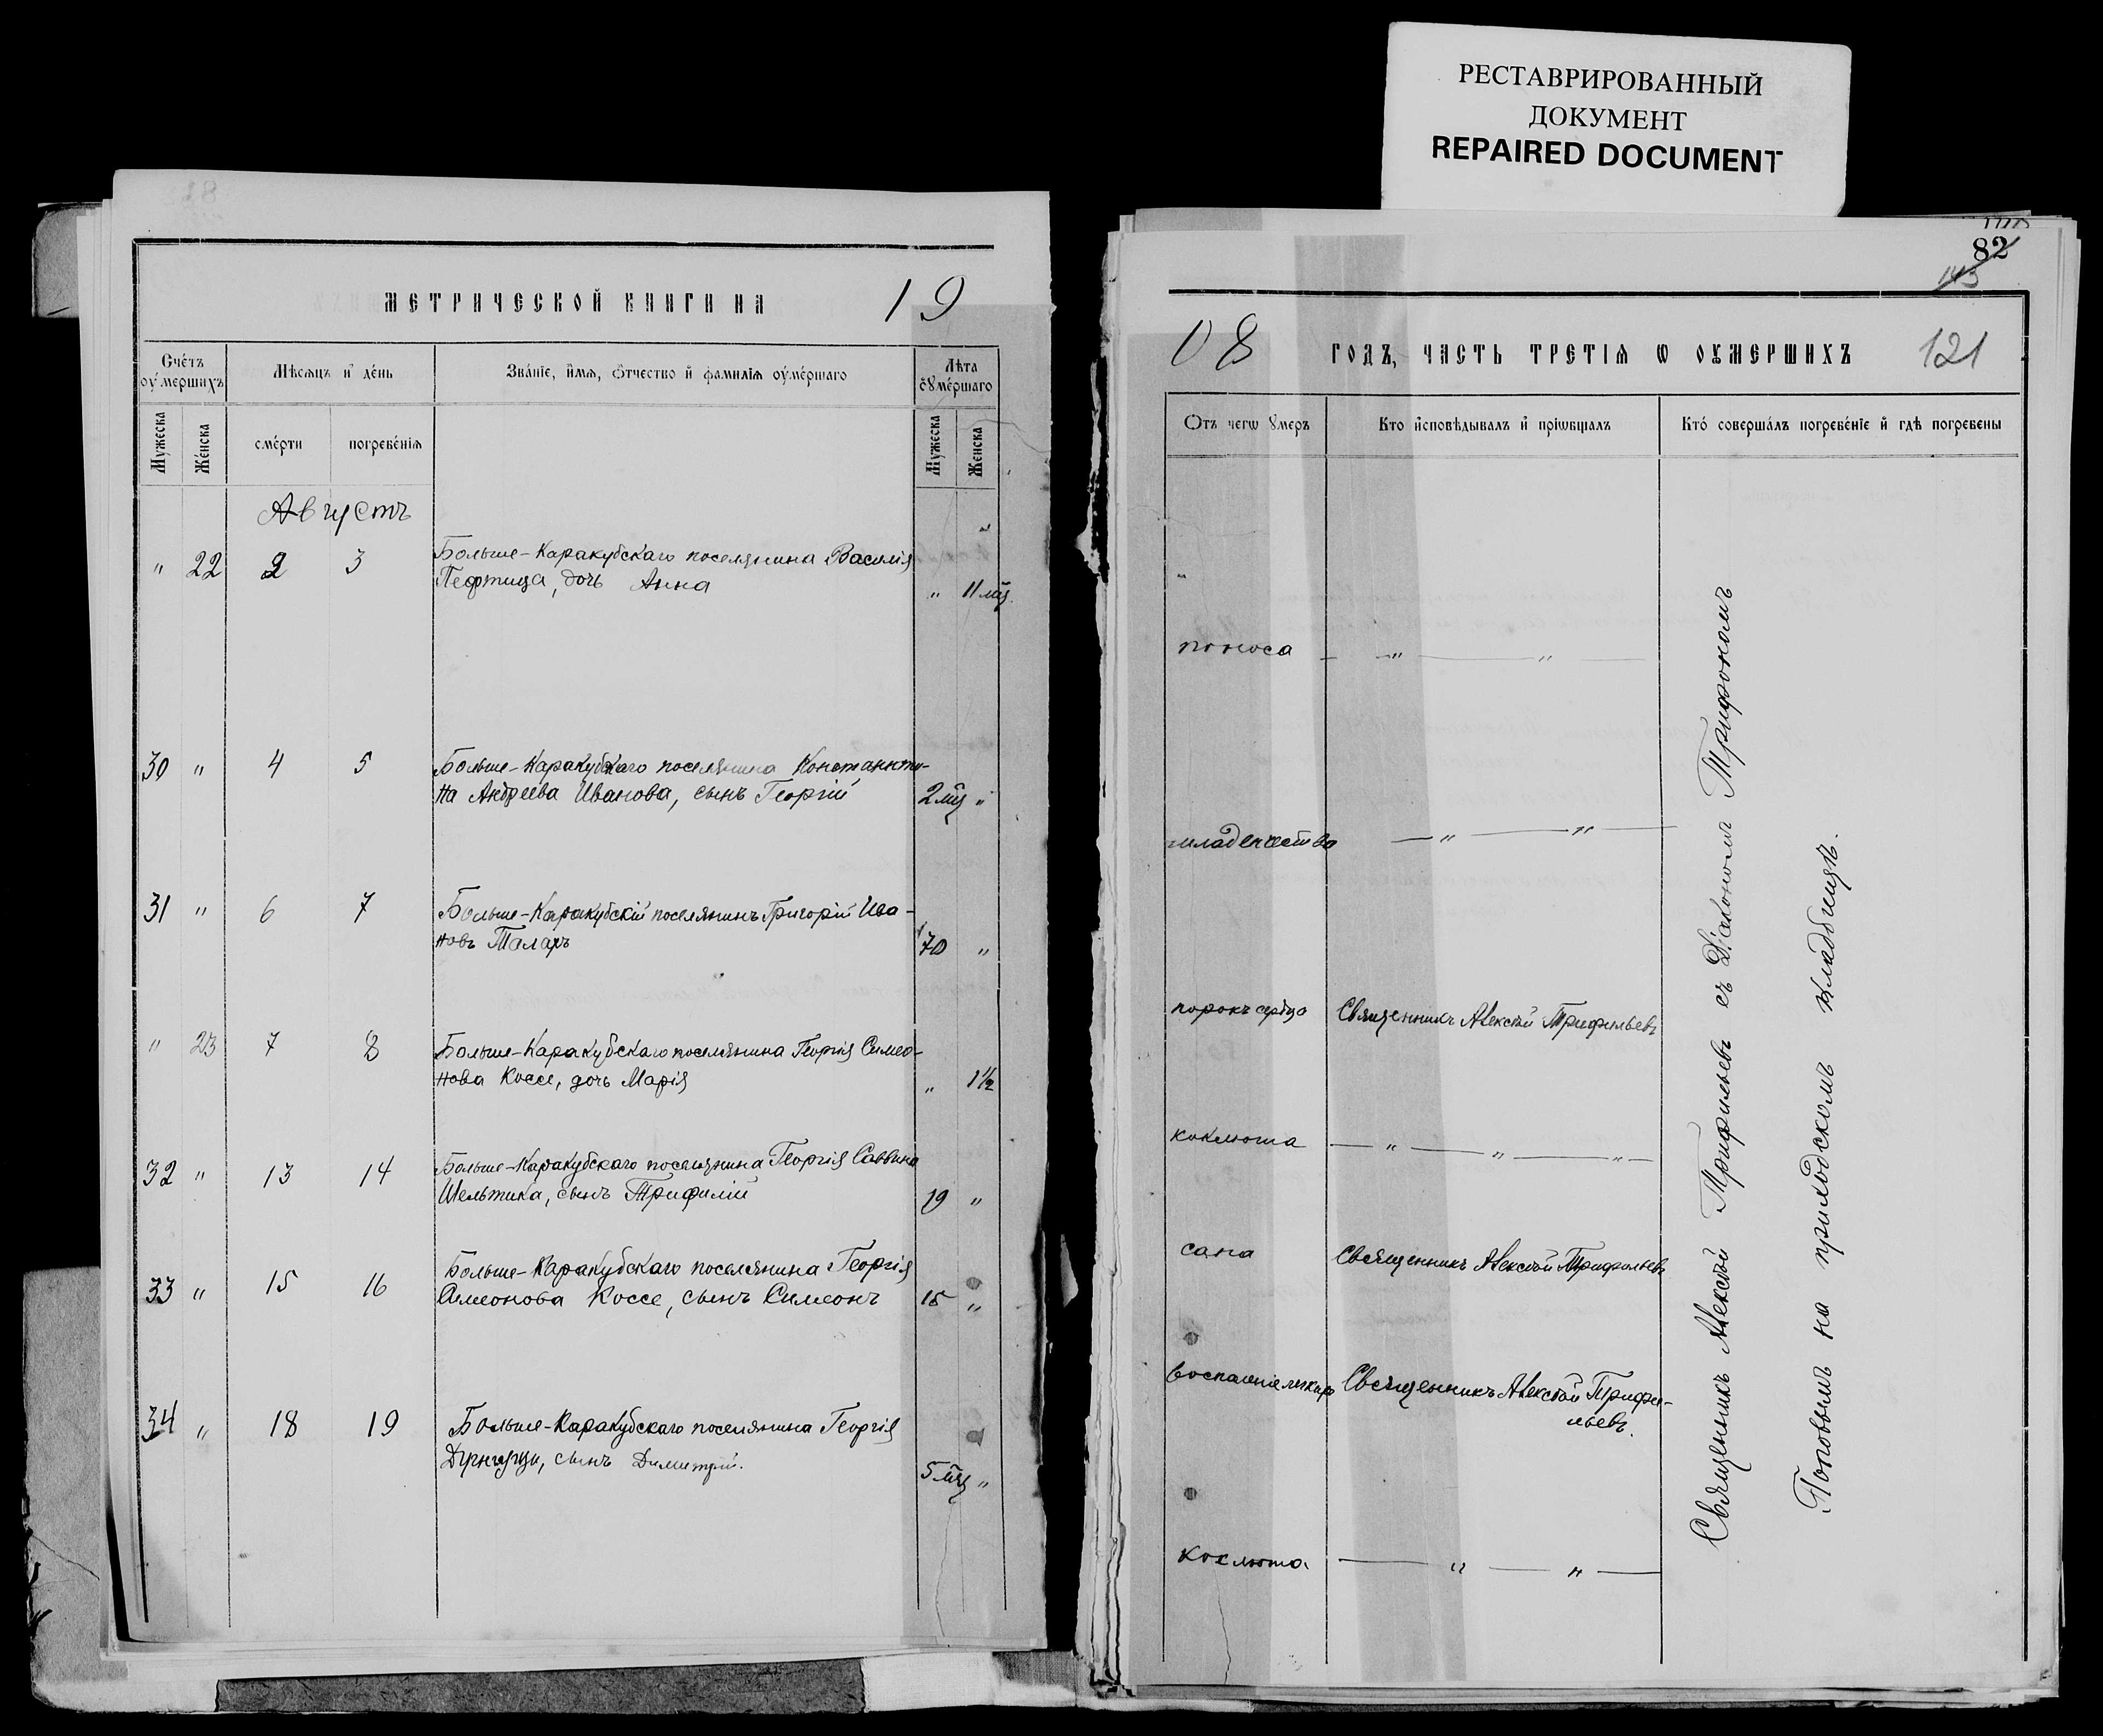 РЕСТАВРИРОВАННЫЙ
ДОКУМЕНТ
REPAIRED DOCUMENT
МЕТРИЧЕСКОЙ КНИГИ НА 19
Счетъ оумершихъ
Мѣсяцъ и день
Званіе, имя, отчество и фамилія оумершаго
Лѣта оумершаго
Мужеска
Женска
смерти
погребенія
Мужеска
Женска
Августъ
" 22 2 3 Больше-Каракубскаго поселянина Василія
дочь Анна " 11 мц.
30 " 4 5 Больше-Каракубскаго поселянина Константи-
на Андреева Иванова, сынъ Георгій 2 мц "
31 " 6 7 Больше-Каракубскій поселянинъ Григорій Ива-
новъ Талахъ 70 "
" 23 7 8 Больше-Каракубскаго поселянина Георгія Симео-
нова Коссе, дочь Марія " 1½
32 " 13 14 Больше-Каракубскаго поселянина Георгія Саввина
Шельтика, сынъ Трифилій 19 "
33 " 15 16 Больше-Каракубскаго поселянина Георгія
Симеонова Коссе, сынъ Симеонъ 15 "
34 " 18 19 Больше-Каракубскаго поселянина Георгія
сынъ Димитрій. 5 мц "
82
143
08 ГОДЪ, ЧАСТЬ ТРЕТІЯ Ѡ ОУМЕРШИХЪ 121
Отъ чегѡ умеръ
Кто исповѣдывалъ и пріѡбщалъ
Кто совершалъ погребеніе и гдѣ погребены
поноса — " — " —
младенчества — " — " —
порокъ сердца Священникъ Алексѣй Трифильевъ
коклюша — " — " — " —
сапа Священникъ Алексѣй Трифильевъ
воспаленіе Священникъ Алексѣй Трифи-
льевъ.
коклюша — " — " —
Священникъ Алексѣй Трифильевъ съ Діакономъ Трифономъ
на приходскомъ кладбищѣ.